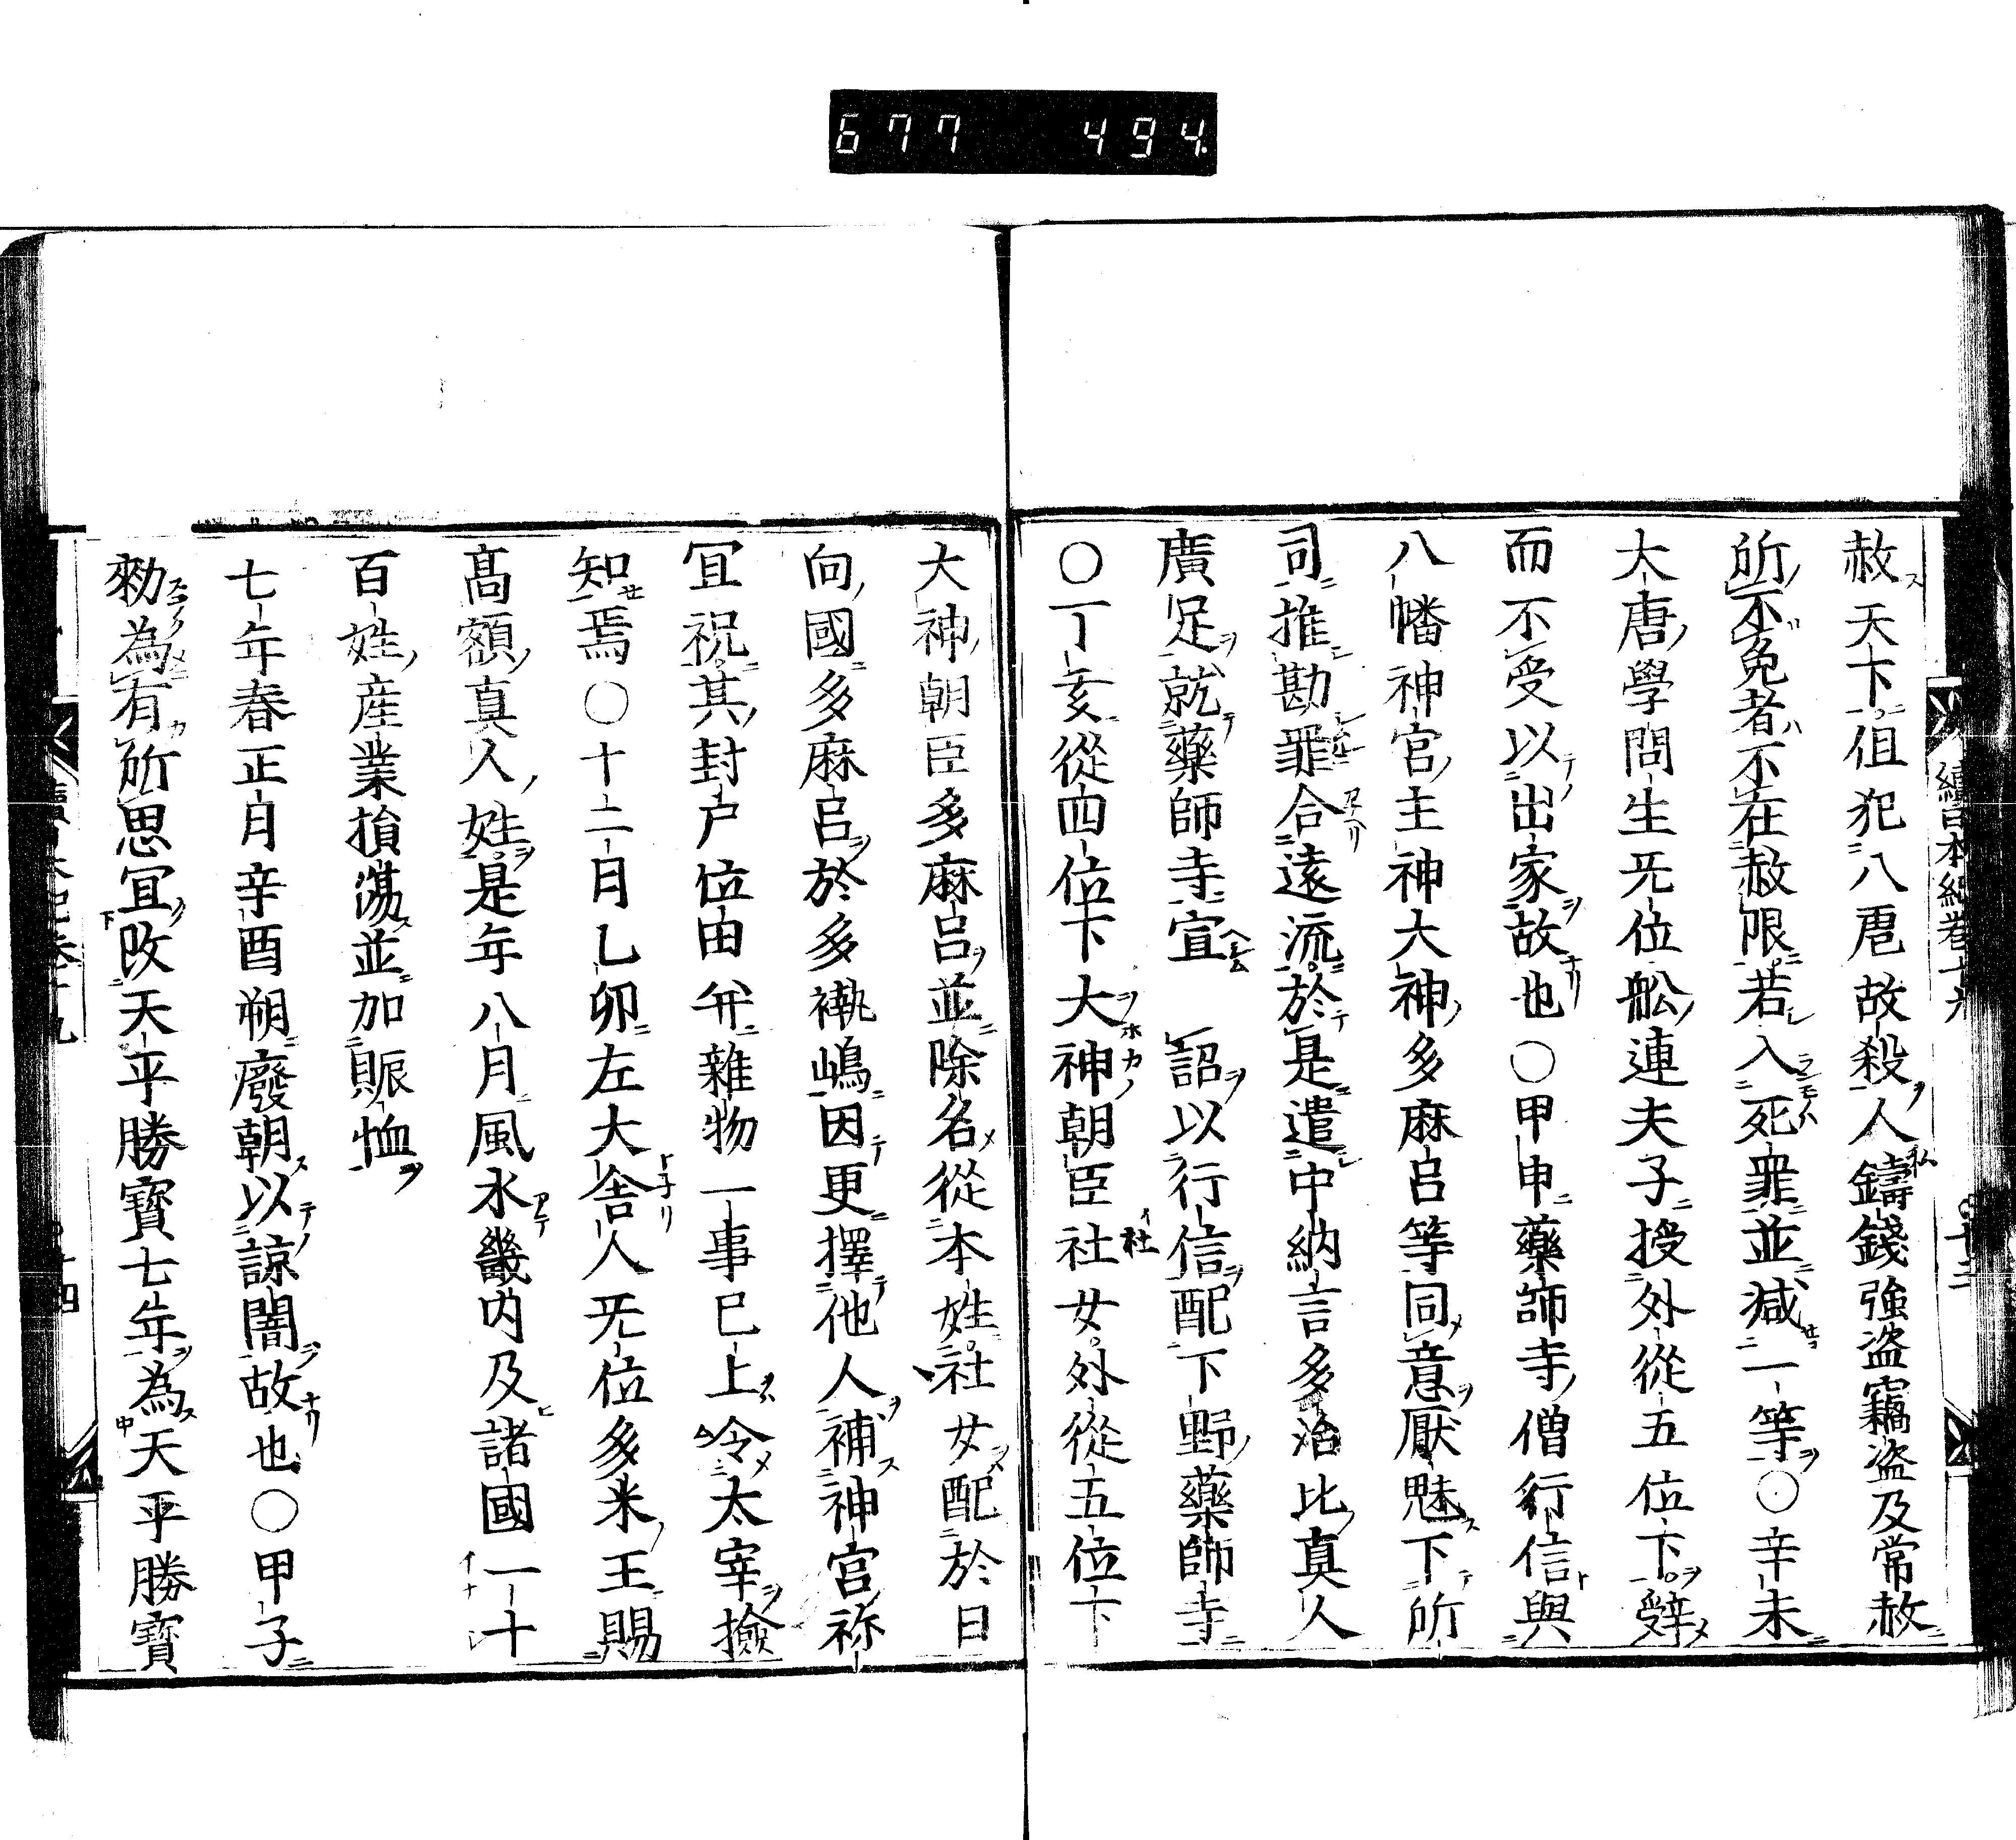 677 494
赦天下但犯八虐故殺人鑄錢強盗竊盗及常赦
所不免者不在赦限若入死罪並減一等〇辛未
大唐學問生无位舩連夫子授外從五位下辞
而不受以出家故也〇甲申藥師寺僧行信與
八幡神宮主神大神多麻呂等同意厭魅下所
司推勘罪合遠流於是遣中納言多治比真人
廣足就藥師寺宣詔以行信配下野藥師寺
〇丁亥從四位下大神朝臣社女外從五位下
大神朝臣多麻呂並除名從本姓社女配於日
向國多麻呂於多褹嶋因更擇他人補神宮祢
冝祝其封戸位田并雜物一事已上令太宰撿
知焉〇十二月乙卯左大舎人无位多米王賜
髙額真人姓是年八月風水畿内及諸國一十
百姓産業損蕩並加賑恤
七年春正月辛酉朔廢朝以諒闇故也〇甲子
勑為有所思冝改天平勝寳七年為天平勝寳